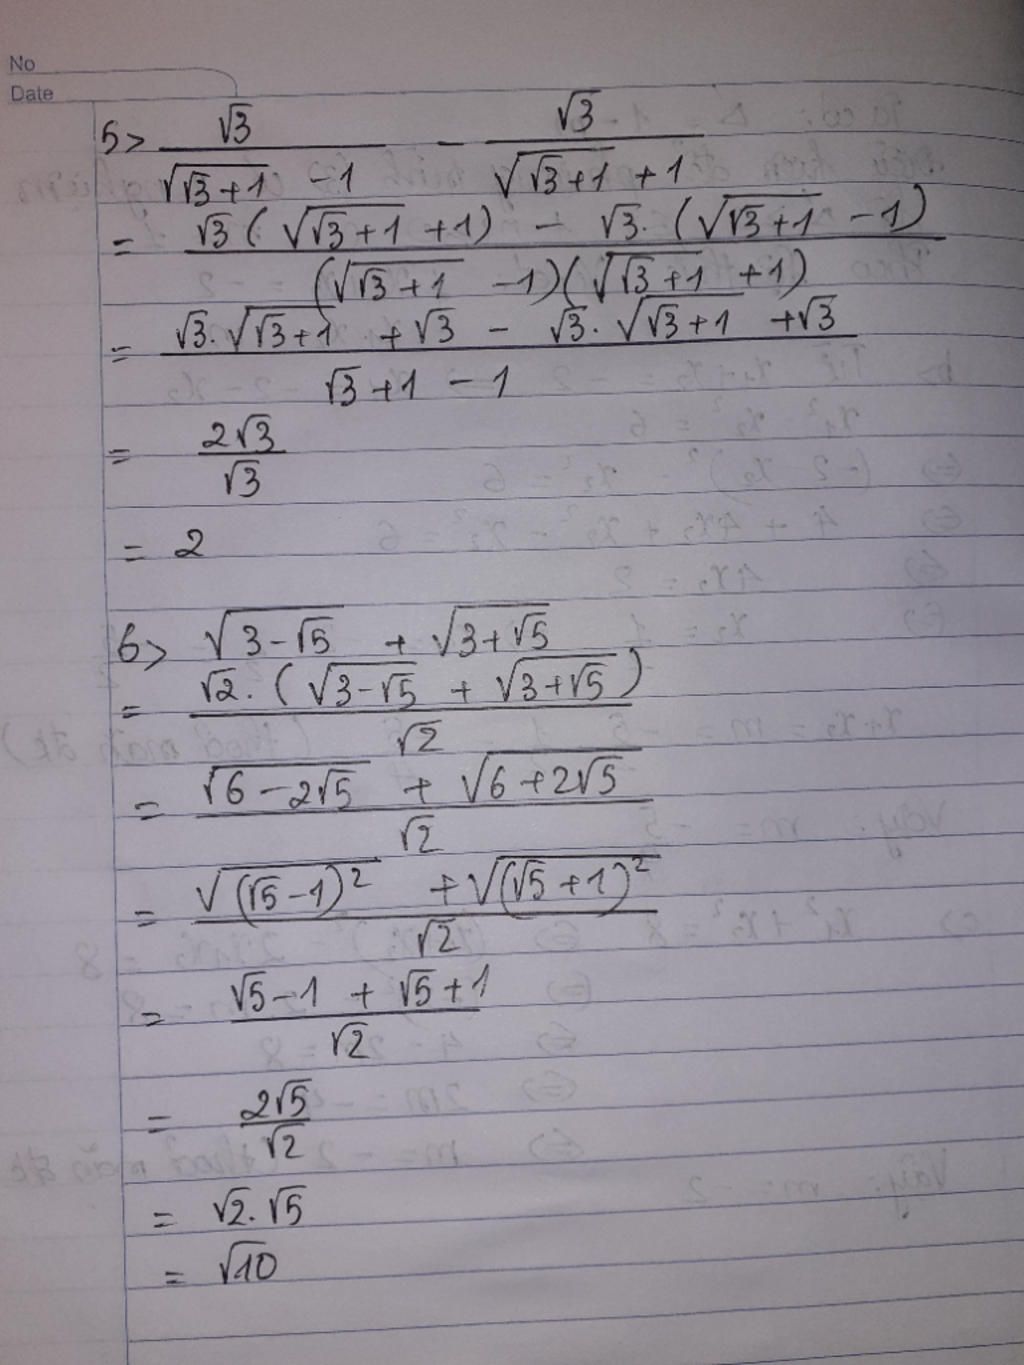 No
Date
5> √3/(√(√3+1) - 1) - √3/(√(√3+1) + 1)
= (√3(√(√3+1) + 1) - √3.(√(√3+1) - 1))/((√(√3+1) - 1)(√(√3+1) + 1))
= (√3.√(√3+1) + √3 - √3.√(√3+1) + √3)/(√3+1 - 1)
= 2√3/√3
= 2
6> √(3-√5) + √(3+√5)
= (√2.(√(3-√5) + √(3+√5)))/√2
= (√(6-2√5) + √(6+2√5))/√2
= (√((√5-1)²) + √((√5+1)²))/√2
= (√5-1 + √5+1)/√2
= 2√5/√2
= √2.√5
= √10